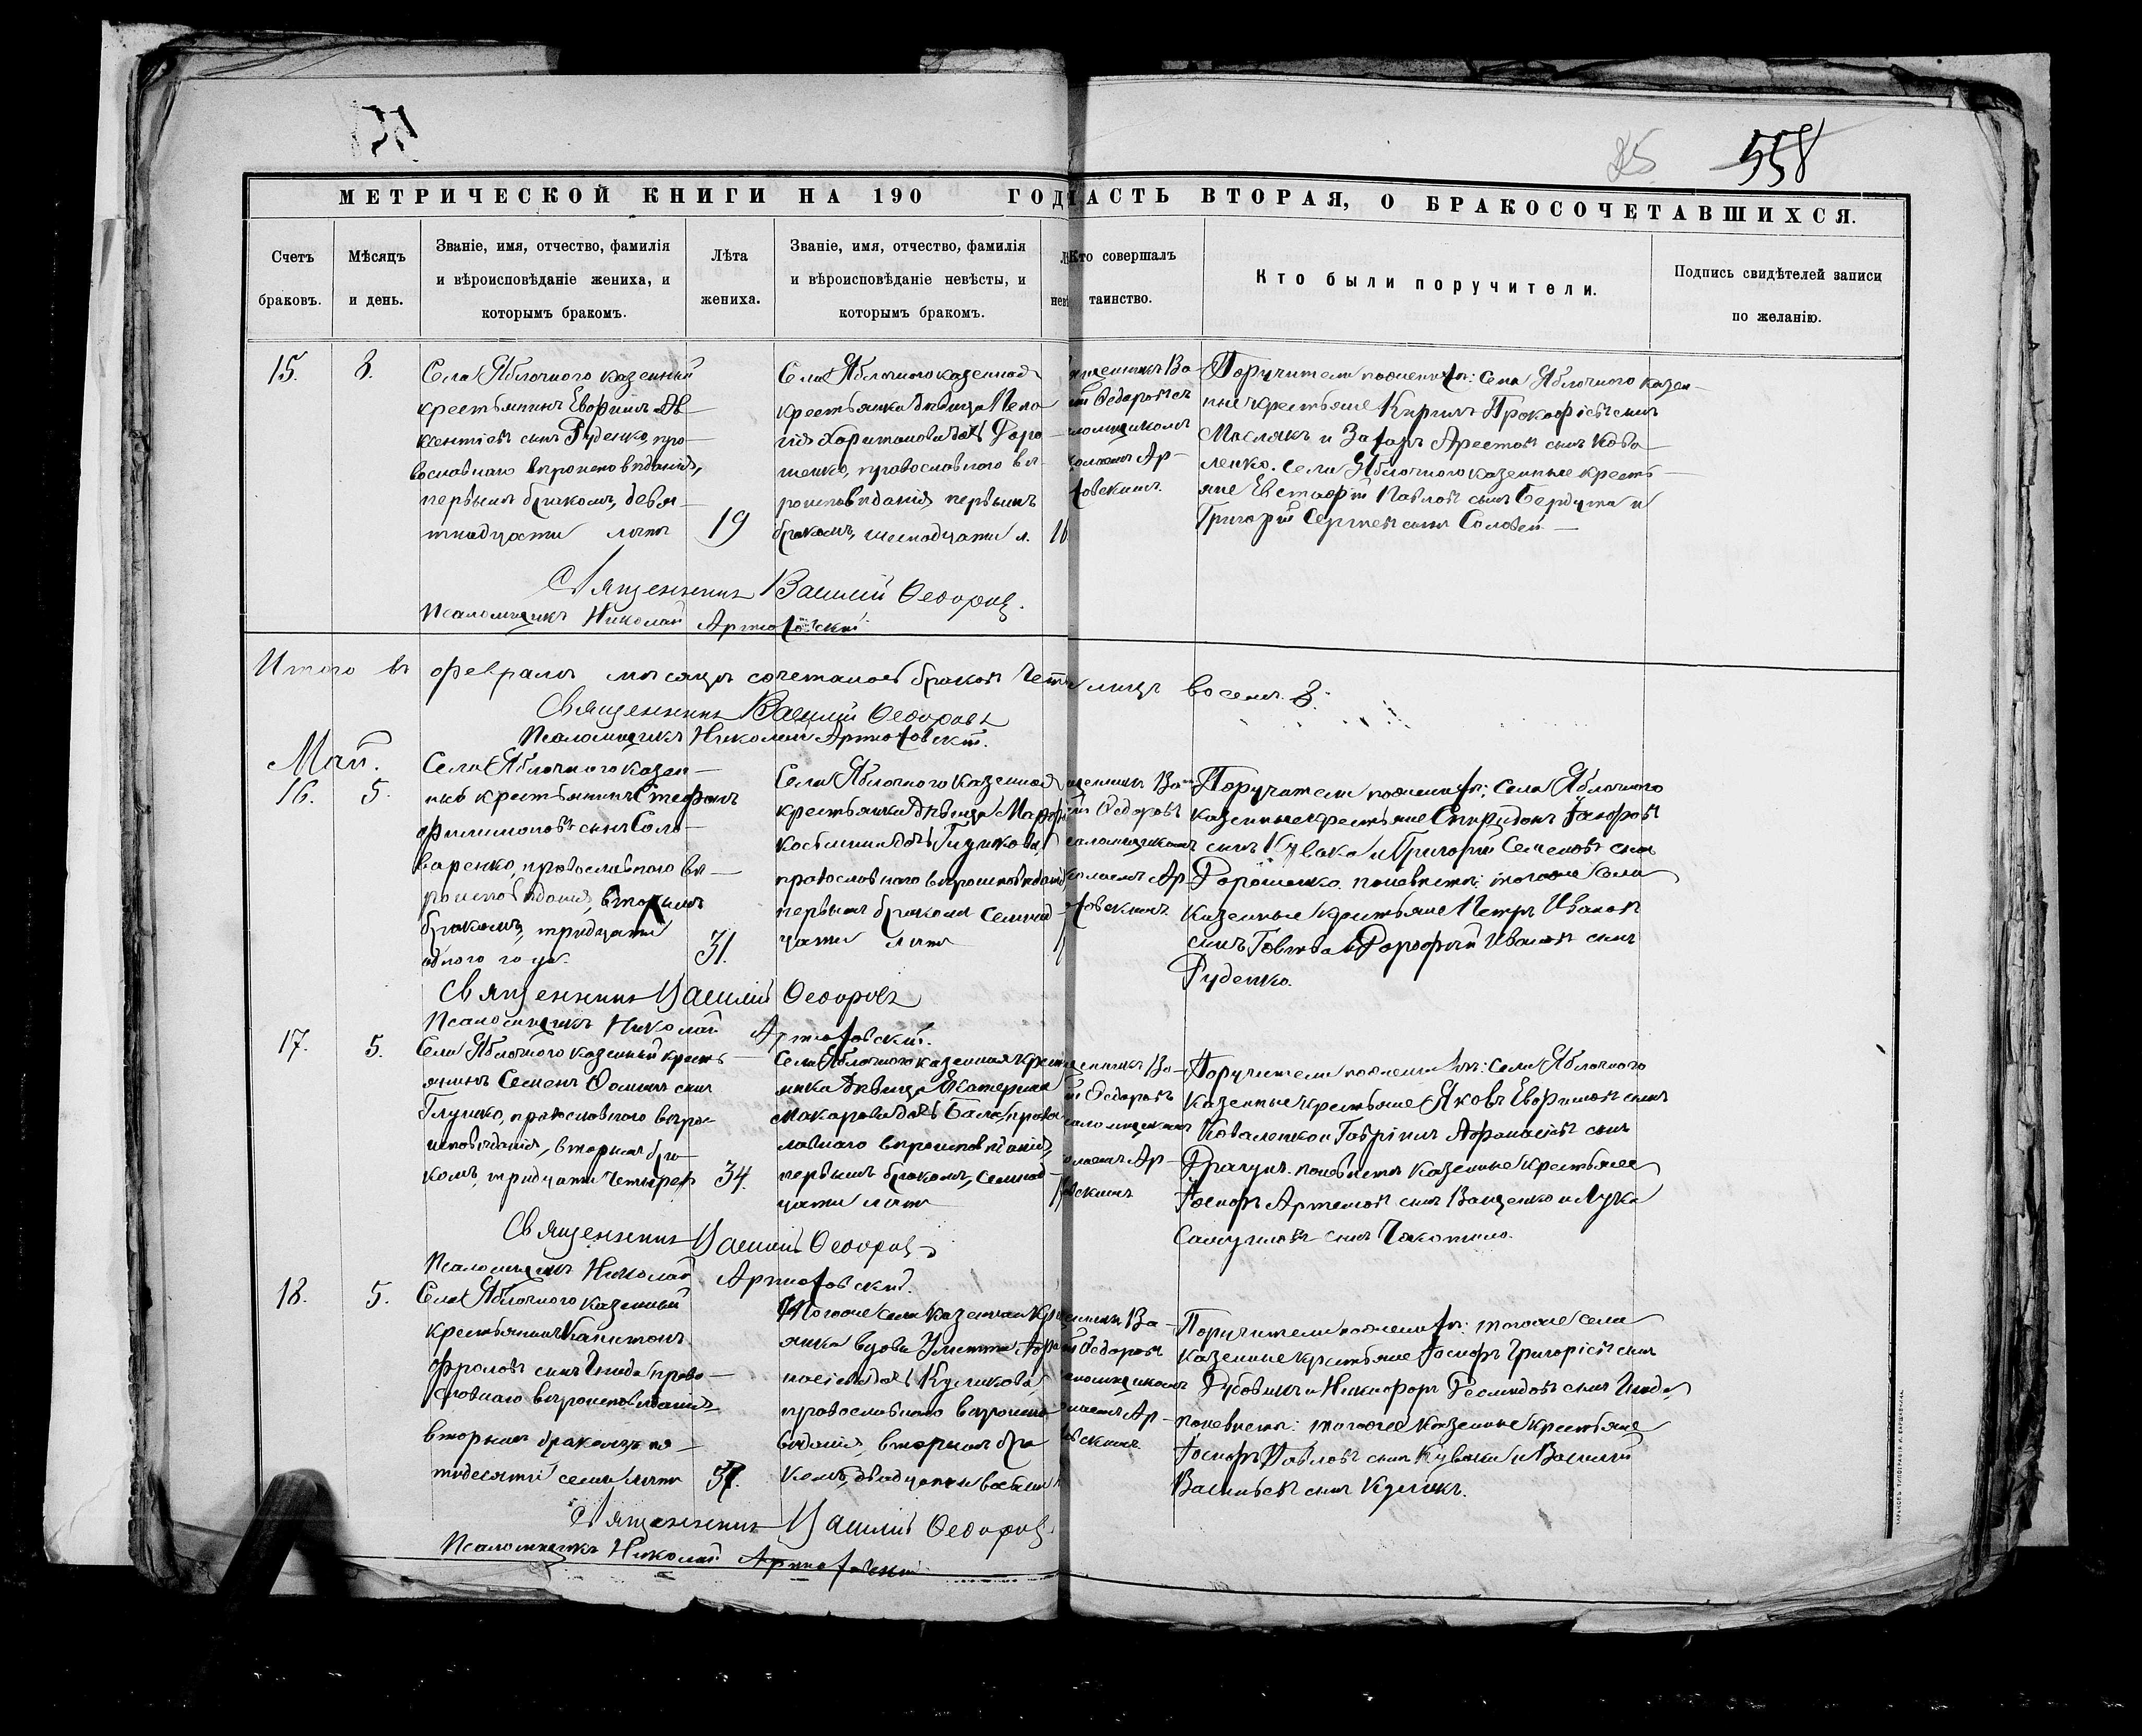 25 558
МЕТРИЧЕСКОЙ КНИГИ НА 190 ГОД
ЧАСТЬ ВТОРАЯ, О БРАКОСОЧЕТАВШИХСЯ.
Счетъ
браковъ.
Мѣсяцъ
и день.
Званіе, имя, отчество, фамилія
и вѣроисповѣданіе жениха, и
которымъ бракомъ.
Лѣта
жениха.
Званіе, имя, отчество, фамилія
и вѣроисповѣданіе невѣсты, и
которымъ бракомъ.
Кто совершалъ
таинство.
Кто были поручители.
Подпись свидѣтелей записи
по желанію.
15.
8.
Села Яблочного казенный
крестьянинъ Евфимъ Ав-
ксентіевъ сынъ Руденко, пра-
вославнаго вѣроисповѣданія,
первымъ бракомъ, девя-
тнадцати лѣтъ
19
Села Яблочного казенная
крестьянка дѣвица Пела
гія Харитонова дочь Доро-
шенко, православного вѣ-
роисповѣданія первымъ
бракомъ, шеснадцати л.
16
щенникъ Ва-
ій Ѳедоровъ
саломщикомъ
колаемъ Ар-
ховскимъ.
Поручители по женихѣ: села Яблочного казен-
ные крестьяне Кирилъ Прокофіевъ сынъ
Маслякъ и Захаръ Арестовъ сынъ Кова-
ленко. Села Яблочного казенные кресть-
яне Евстафій Павловъ сынъ Бердута и
Григорій Сергѣевъ сынъ Соловей
Священникъ Василій Ѳедоровъ.
Псаломщикъ Николай Артюховскій
Итого въ февралѣ мѣсяцѣ сочеталось браковъ четы лицъ восемь. 8.
Священникъ Василій Ѳедоровъ
Псаломщикъ Николай Артюховскій.
Май.
16.
5.
Села Яблочного казен-
ный крестьянинъ Стефанъ
Филимоновъ сынъ Соло-
варенко, православного вѣ-
роисповѣданія, вторымъ
бракомъ, тридцати
одного года.
31.
Села Яблочного казенная
крестьянка дѣвица Марфа
Косьмина дочь Гузикова,
православного вѣроисповѣданія
первымъ бракомъ семнад-
цати лѣтъ
щенникъ Ва-
ій Ѳедоровъ
саломщикомъ
колаемъ Ар-
ховскимъ.
Поручители по женихѣ: села Яблочного
казенные крестьяне Спиридонъ
сынъ Кувака и Григорій Семеновъ сынъ
Дорошенко. по невѣстѣ: того же села
казенные крестьяне Петръ Ивановъ
сынъ Говтва и Дорофей Ивановъ сынъ
Руденко.
Священникъ Василій Ѳедоровъ
Псаломщикъ Николай Артюховскій.
17.
5.
Села Яблочного казенный кресть-
янинъ Семенъ Ѳоминъ сынъ
Глушко, православного вѣро-
исповѣданія, вторымъ бра-
комъ, тридцати четырехъ
34.
Села Яблочного казенная крест
янка дѣвица Екатерина
Макарова дочь Бала, право
славнаго вѣроисповѣданія,
первымъ бракомъ, семнад-
цати лѣтъ
щенникъ Ва-
ій Ѳедоровъ
саломщикомъ
колаемъ Ар-
вскимъ
Поручители по женихѣ: села Яблочного
казенные крестьяне Яковъ Евфимовъ сынъ
Коваленко и Гавріилъ Афанасіевъ сынъ
Драгунъ. по невѣстѣ казенные крестьяне
Іосифъ Артемовъ сынъ Ващенко и Лука
Самуиловъ сынъ
Священникъ Василій Ѳедоровъ
Псаломщикъ Николай Артюховскій.
18.
5.
Села Яблочного казенный
крестьянинъ Капитонъ
Фроловъ сынъ Гнида право-
славнаго вѣроисповѣданія
вторымъ бракомъ
семи лѣтъ
37.
Того же села казенная кр
янка вдова Улитта Афа
насіева дочь Куликова,
православного вѣроиспо
вѣданія, вторымъ бра
комъ, двадцати восьми
щенникъ Ва-
ій Ѳедоровъ
саломщикомъ
олаемъ Ар-
вскимъ
Поручители по женихѣ: того же села
казенные крестьяне Іосифъ Григоріевъ сынъ
Рубовикъ и Никифоръ сынъ Гнида,
по невѣстѣ: того же казенные крестьяне
Іосифъ Павловъ сынъ Кувака и Василій
Васильевъ сынъ Куликъ.
Священникъ Василій Ѳедоровъ
Псаломщикъ Николай Артюховскій